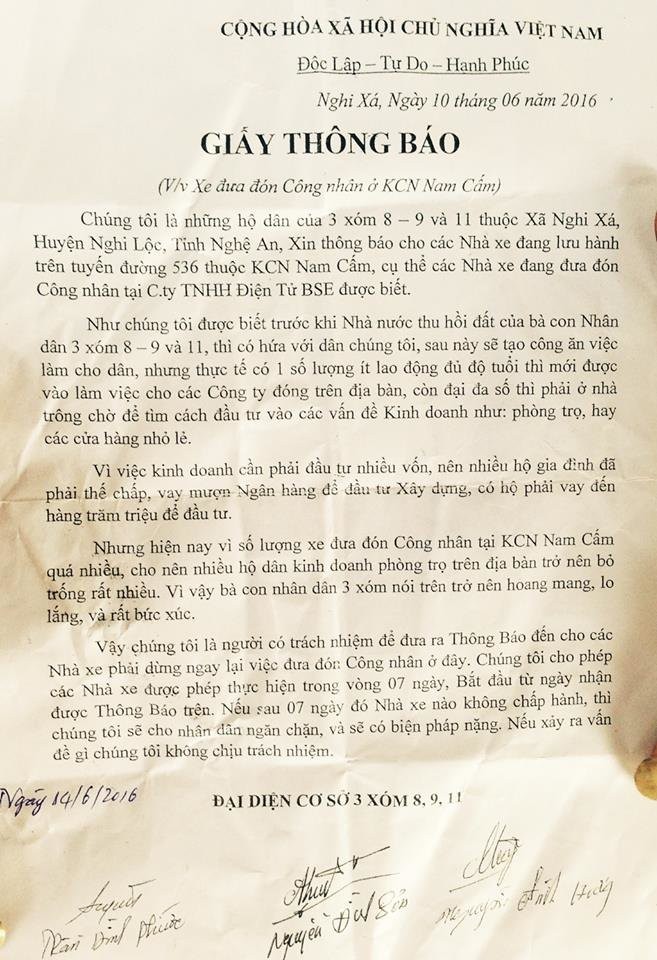 CỘNG HÒA XÃ HỘI CHỦ NGHĨA VIỆT NAM
Độc Lập – Tự Do – Hạnh Phúc
Nghi Xá, Ngày 10 tháng 06 năm 2016
GIẤY THÔNG BÁO
(V/v Xe đưa đón Công nhân ở KCN Nam Cấm)
Chúng tôi là những hộ dân của 3 xóm 8 – 9 và 11 thuộc Xã Nghi Xá,
Huyện Nghi Lộc, Tỉnh Nghệ An, Xin thông báo cho các Nhà xe đang lưu hành
trên tuyến đường 536 thuộc KCN Nam Cấm, cụ thể các Nhà xe đang đưa đón
Công nhân tại C.ty TNHH Điện Tử BSE được biết.
Như chúng tôi được biết trước khi Nhà nước thu hồi đất của bà con Nhân
dân 3 xóm 8 – 9 và 11, thì có hứa với dân chúng tôi, sau này sẽ tạo công ăn việc
làm cho dân, nhưng thực tế có 1 số lượng ít lao động đủ độ tuổi thì mới được
vào làm việc cho các Công ty đóng trên địa bàn, còn đại đa số thì phải ở nhà
trông chờ để tìm cách đầu tư vào các vấn đề Kinh doanh như: phòng trọ, hay
các cửa hàng nhỏ lẻ.
Vì việc kinh doanh cần phải đầu tư nhiều vốn, nên nhiều hộ gia đình đã
phải thế chấp, vay mượn Ngân hàng để đầu tư Xây dựng, có hộ phải vay đến
hàng trăm triệu để đầu tư.
Nhưng hiện nay vì số lượng xe đưa đón Công nhân tại KCN Nam Cấm
quá nhiều, cho nên nhiều hộ dân kinh doanh phòng trọ trên địa bàn trở nên bỏ
trống rất nhiều. Vì vậy bà con nhân dân 3 xóm nói trên trở nên hoang mang, lo
lắng, và rất bức xúc.
Vậy chúng tôi là người có trách nhiệm để đưa ra Thông Báo đến cho các
Nhà xe phải dừng ngay lại việc đưa đón Công nhân ở đây. Chúng tôi cho phép
các Nhà xe được phép thực hiện trong vòng 07 ngày, Bắt đầu từ ngày nhận
được Thông Báo trên. Nếu sau 07 ngày đó Nhà xe nào không chấp hành, thì
chúng tôi sẽ cho nhân dân ngăn chặn, và sẽ có biện pháp nặng. Nếu xảy ra vấn
đề gì chúng tôi không chịu trách nhiệm.
Ngày 14/6/2016
ĐẠI DIỆN CƠ SỞ 3 XÓM 8, 9, 11
Trần Đình Phước
Nguyễn Đình
Nguyễn